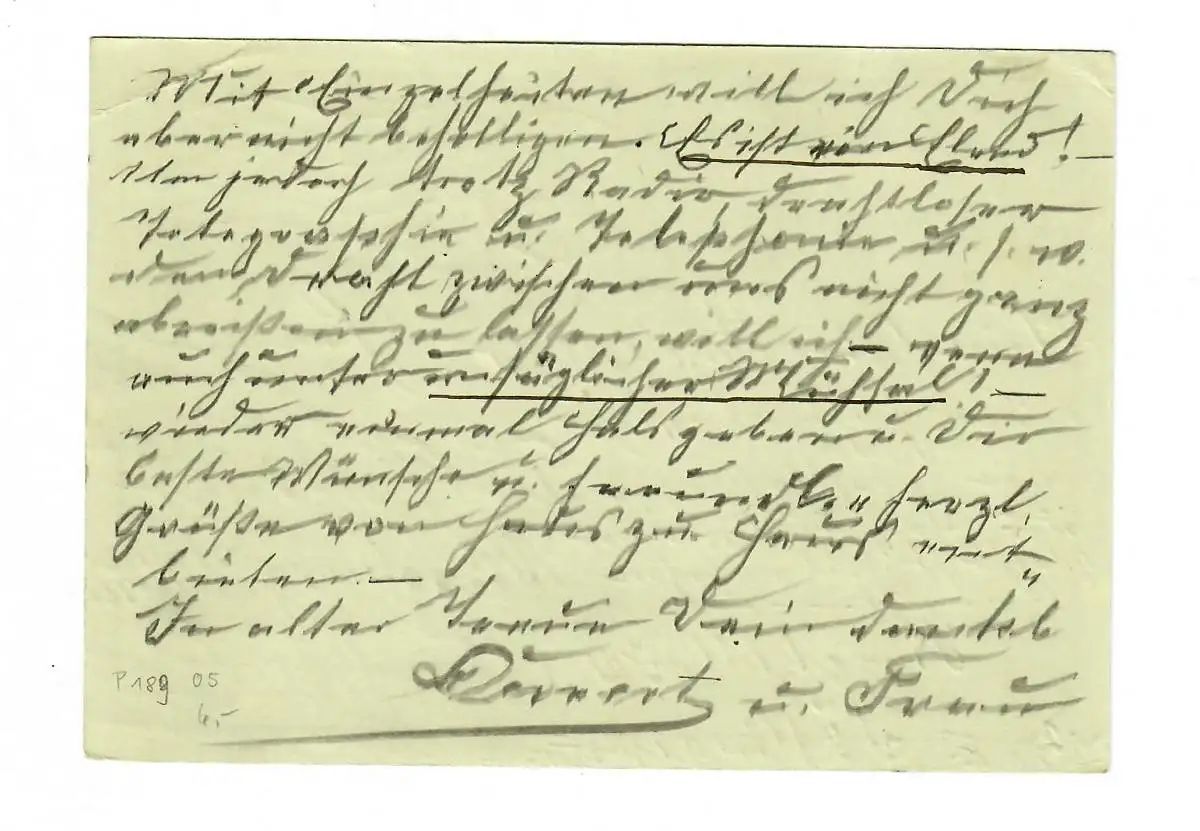 Mit Einzelheiten will ich Dich
aber nicht behelligen. Es ist ein Elend! –
Um jedoch trotz Radio, drahtloser
Telegraphie u. Telephonie u. s. w.
den Draht zwischen uns nicht ganz
abreißen zu lassen, will ich – wenn
auch unter unsäglicher Mühsal! –
wieder einmal Hals geben u. Dir
beste Wünsche u. freundl. herzl.
Grüße von Haus zu Haus ent
bieten. –
In alter Treue Dein dankb
u. Frau
P 189 05